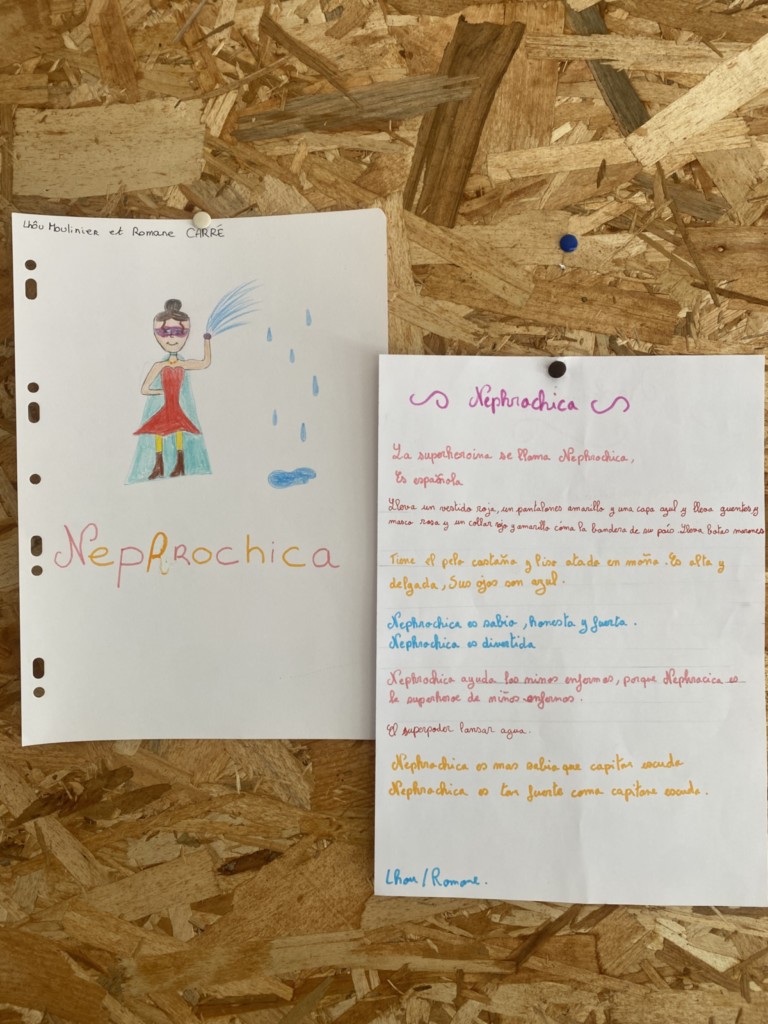 Lhôu Moulinier et Romane CARRÉ
Nephrochica
Nephrochica
La superheroina se llama Nephrochica,
Es española
Lleva un vestido roja, un pantalones amarillo y una capa azul y lleva guentes y
masco rosa y un collar rojo y amarillo cóma la bandera de su país. Lleva botas marones
Tiene el pelo castaña y liso atada en moña. Es alta y
delgada, Sus ojos son azul.
Nephrochica es sabia, honesta y fuerta.
Nephrochica es divertida
Nephrochica ayuda los ninos enfermos, porque Nephracica es
la superheroe de niños enfermos.
El superpoder lansar agua.
Nephrachica es mas sabia que capitan escuda
Nephrachica es tan fuerte coma capitane escuda.
Lhou/Romane.